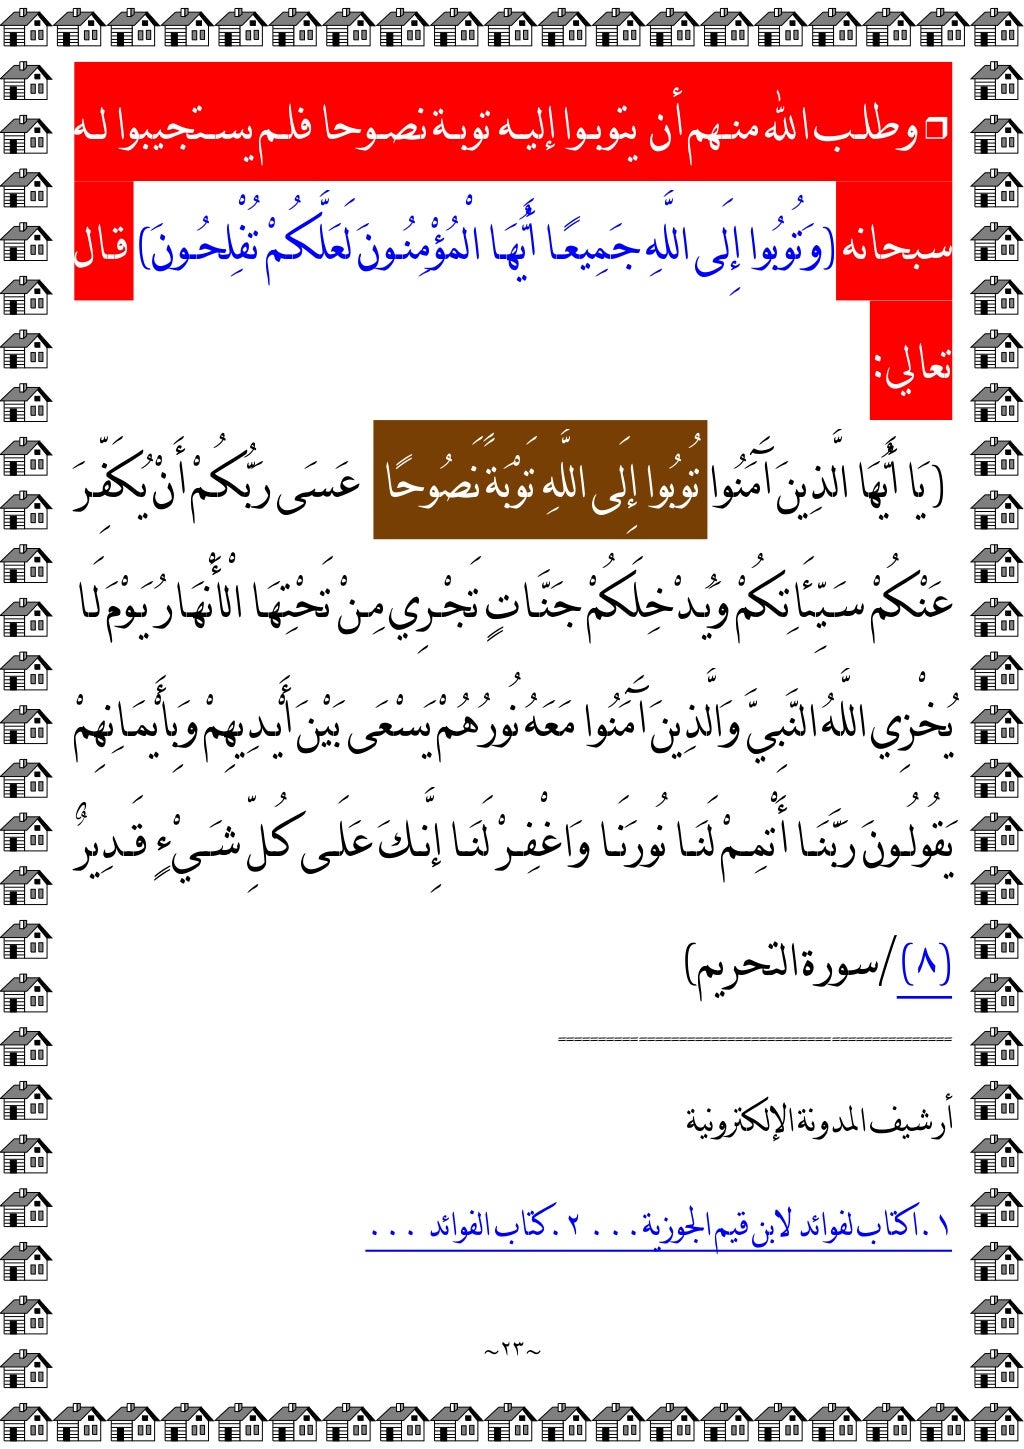 ❒ وطلب الله منهم أن يتوبوا إليه توبة نصوحا فلم يستجيبوا له
سبحانه (وَتُوبُوا إِلَى اللَّهِ جَمِيعًا أَيُّهَا الْمُؤْمِنُونَ لَعَلَّكُمْ تُفْلِحُونَ) قال
تعالي:
(يَا أَيُّهَا الَّذِينَ آَمَنُوا تُوبُوا إِلَى اللَّهِ تَوْبَةً نَصُوحًا عَسَى رَبُّكُمْ أَنْ يُكَفِّرَ
عَنْكُمْ سَيِّئَاتِكُمْ وَيُدْخِلَكُمْ جَنَّاتٍ تَجْرِي مِنْ تَحْتِهَا الْأَنْهَارُ يَوْمَ لَا
يُخْزِي اللَّهُ النَّبِيَّ وَالَّذِينَ آَمَنُوا مَعَهُ نُورُهُمْ يَسْعَى بَيْنَ أَيْدِيهِمْ وَبِأَيْمَانِهِمْ
يَقُولُونَ رَبَّنَا أَتْمِمْ لَنَا نُورَنَا وَاغْفِرْ لَنَا إِنَّكَ عَلَى كُلِّ شَيْءٍ قَدِيرٌ
(٨) /سورة التحريم)
=================================================
أرشيف المدونة الإلكترونية
١ .اكتاب لفوائد لابن قيم الجوزية. . . ٢ .كتاب الفوائد . . .
~٢٣~